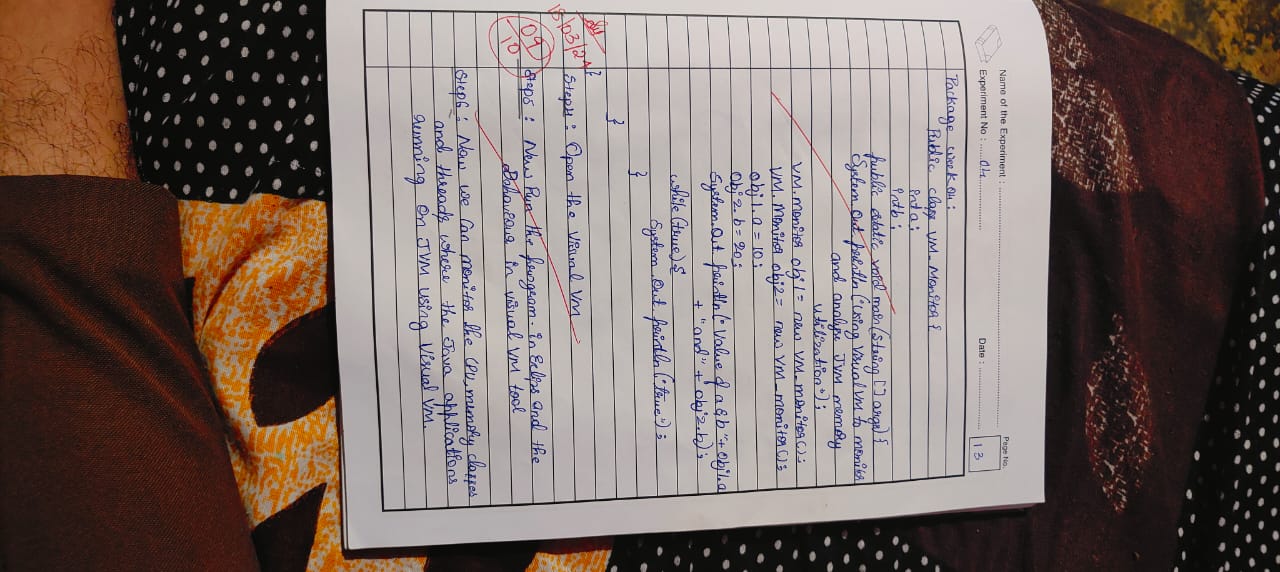 Name of the Experiment :
Page No.
Experiment No : 04
Date :
13
Package week 04 :
Public class VM_Monitor {
int a ;
int b ;
public static void main (String [] args) {
System. Out. println ("Using Visual VM to monitor
and analyse JVM memory
utilization");
VM. monitor obj1 = new VM_monitor ();
VM. Monitor obj2 = new VM_monitor ();
obj 1. a = 10 ;
Obj 2. b = 20 ;
System. Out. println (" Value of a & b " + Obj1. a
+ "and" + obj2. b) ;
while (true) {
System. Out. println ("true") ;
}
}
}
18/03/24
Step4 : Open the Visual VM
09
10
Step5 : New Run the program. in Eclips and the
Bahaviour in visual VM tool
Step6 : Now we Can monitor the CPU, memory classes
and threads where the Java applications
running On JVM using Visual VM.